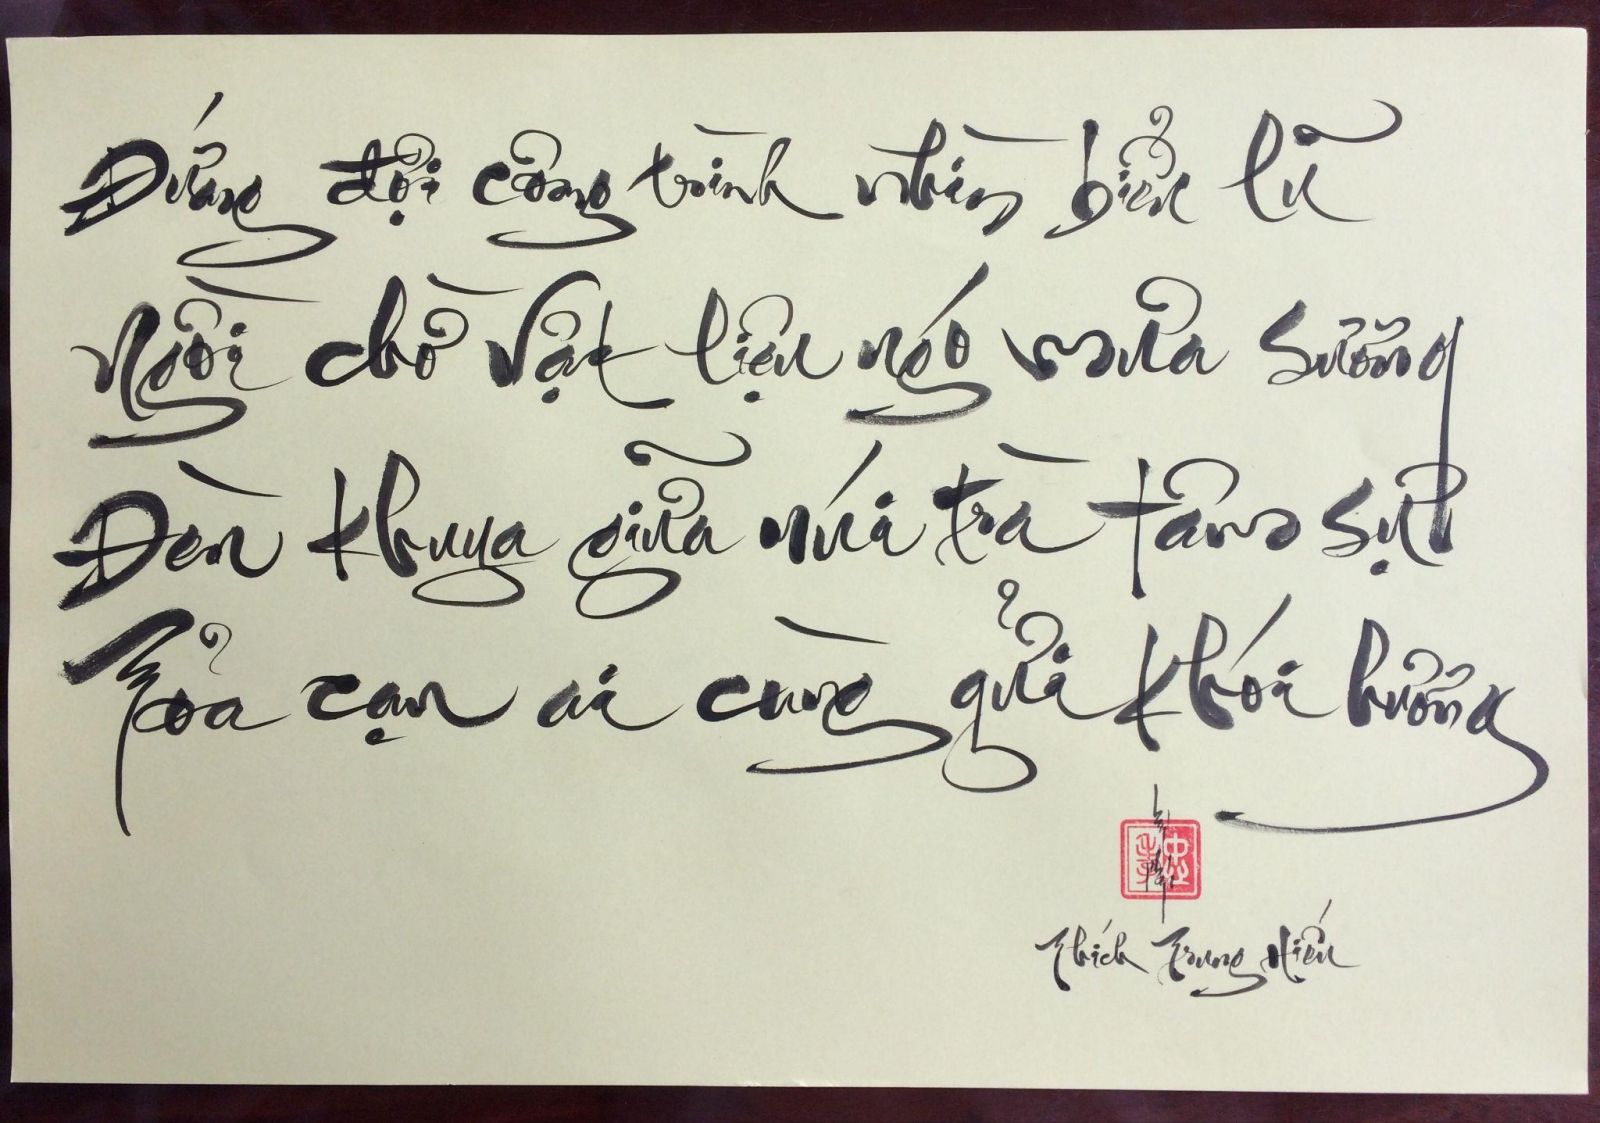 Đứng đợi công trình nhìn biển lũ
Ngồi chờ vật liệu ngó mưa sương
Đèn khuya giữa núi trà tâm sự
Tỏa cạn ai cùng gửi khói hương
Thích Trung Hiếu